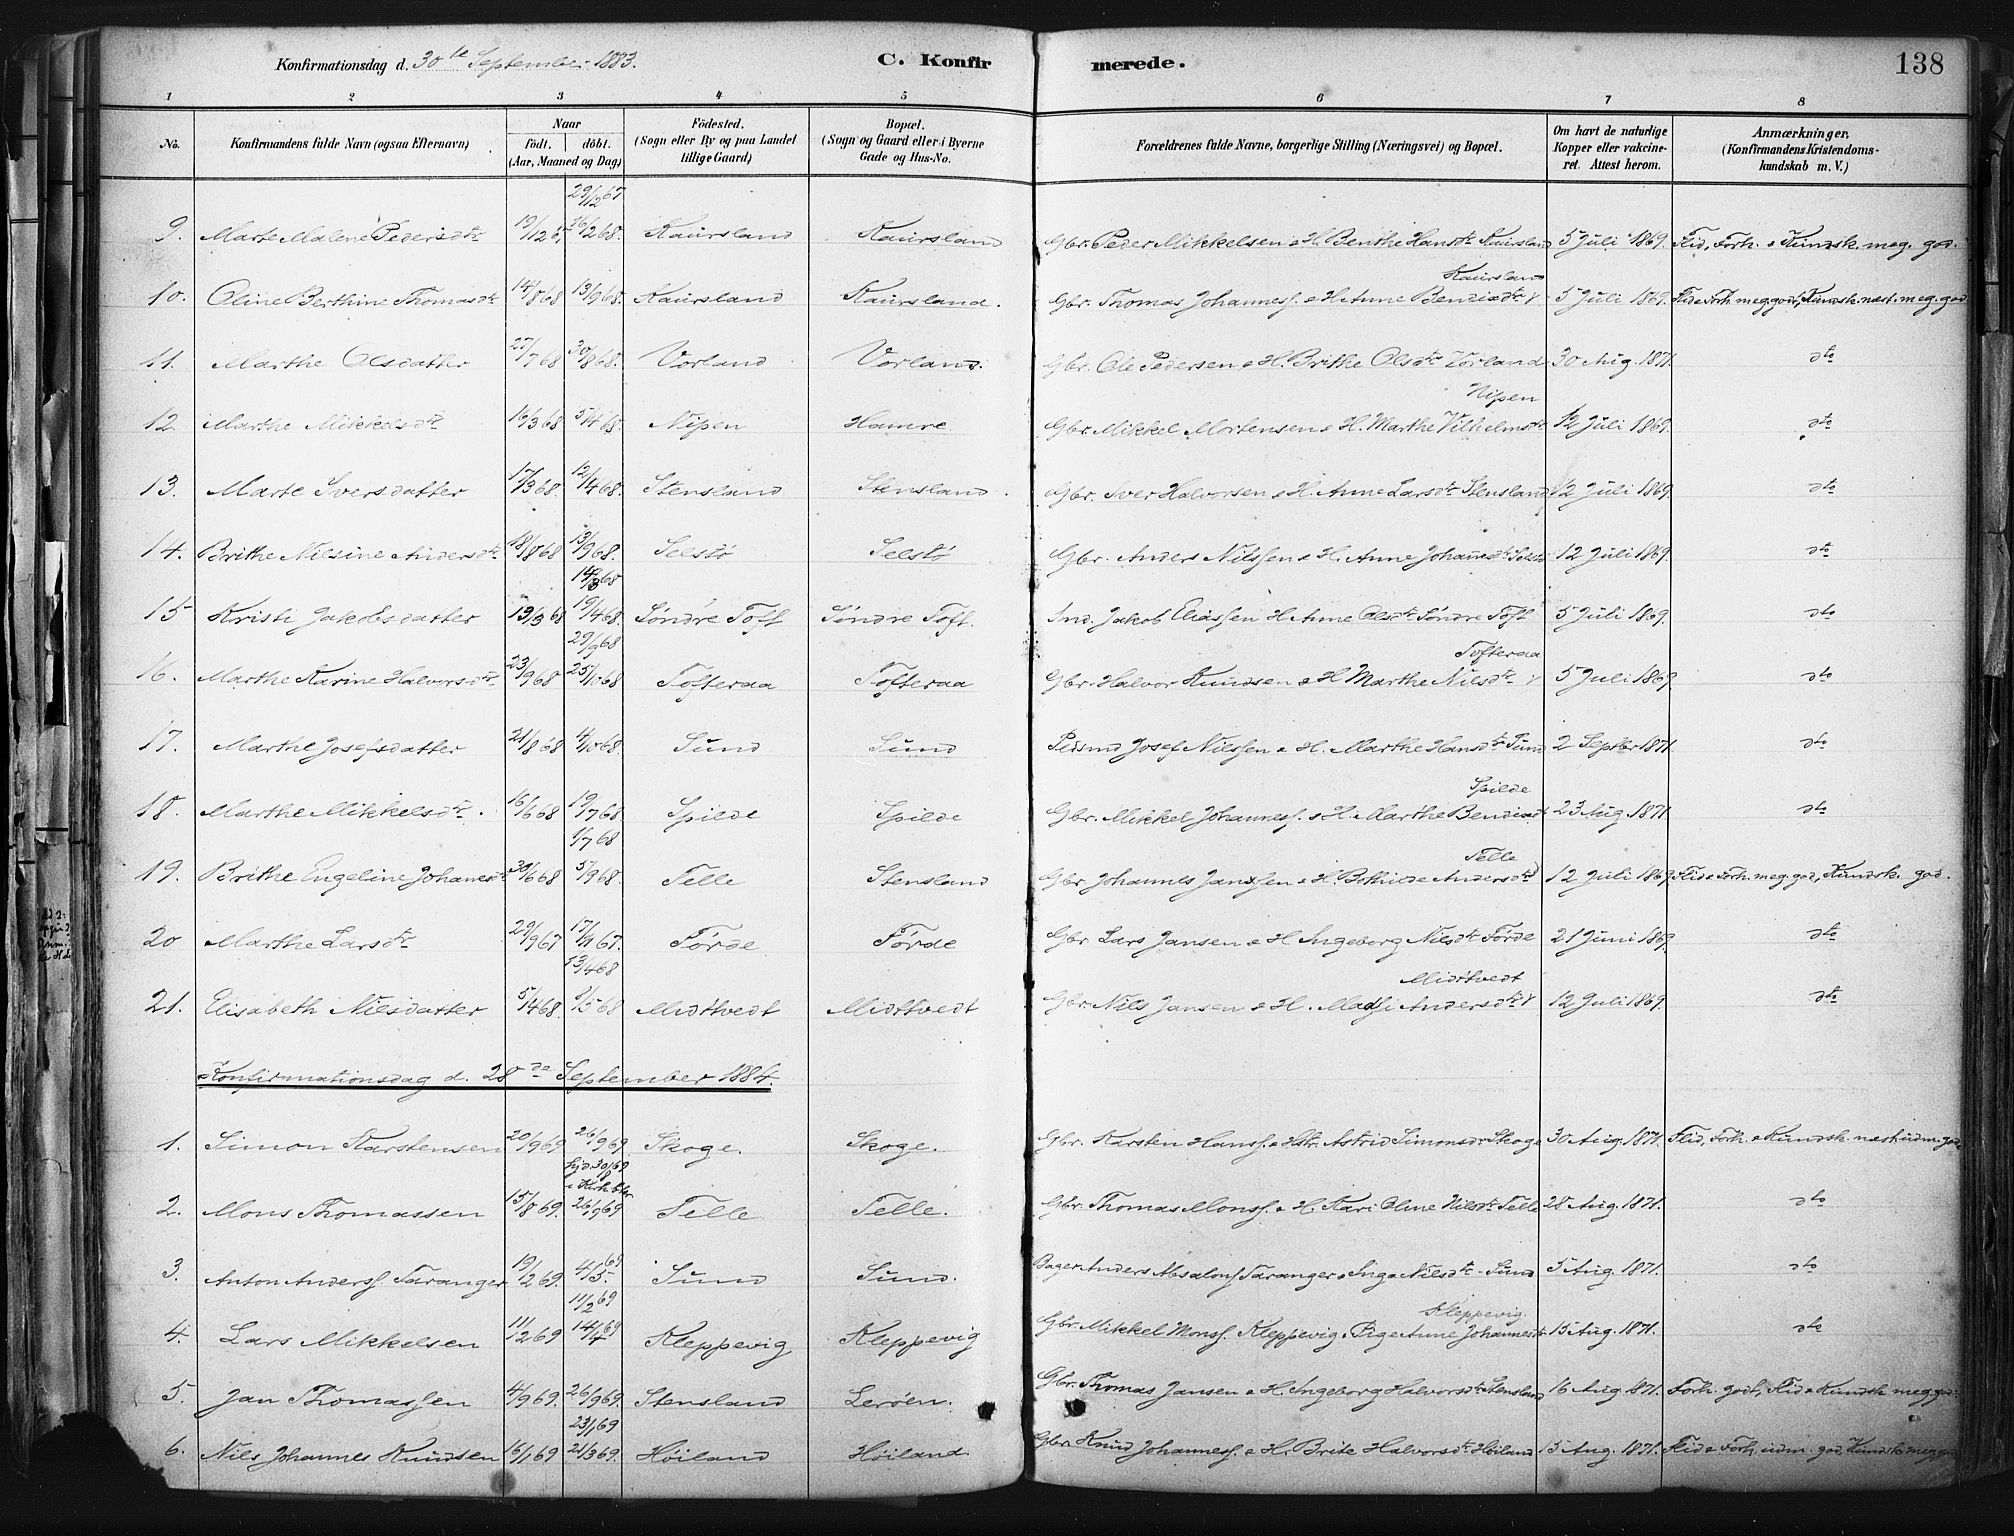 Konfirmationsdag d. 30te September 1883. C. Konfirmerede. 138
1 2 3 4 5 6 7 8
No. Konfirmandens fulde Navn (ogsaa Efternavn) Naar født. døbt. (Aar, Maaned og Dag) Fødested. (Sogn eller By og paa Landet tillige Gaard) Bopæl. (Sogn og Gaard eller i Byerne Gade og Hus-No. Forældrenes fulde Navne, borgerlige Stilling (Næringsvei) og Bopæl. Om havt de naturlige Kopper eller vakcineret. Attest herom. Anmærkninger. (Konfirmandens Kristendomskundskab m. V.)
29/12 67
9. Marte Malene Pedersdtr 19/12 67 16/2 68. Kaursland Kaursland Gbr. Peder Mikkelsen & H. Benthe Hansdtr Kaursland 5 Juli 1869. Flid, Forh. & Kundsk. meg. god.
Kaursland
10. Oline Berthine Thomasdtr 14/8 68 13/9 68. Kaursland Kaursland. Gbr. Thomas Johannesf. & H. Anne Bendixdtr 5 Juli 1869. Flid & Forh. meg. godt, Kundsk. næst. meg. god.
11. Marthe Olsdatter 27/7 68 30/8 68. Vorland Vorland. Gbr. Ole Pedersen & H. Brithe Olsdtr Vorland 30 Aug. 1871. dto
Nipen
12. Marthe Mikkelsdtr 16/3 68 5/4 68. Nipen Hamre Gbr. Mikkel Mortensen & H. Marthe Vilhelmsdtr 12 Juli 1869. dto
13. Marte Iversdatter 17/3 68. 12/4 68. Stensland Stensland. Gbr. Iver Halvorsen & H. Anne Larsdtr Stensland 12 Juli 1869. dto
14. Brithe Nilsine Andersdtr 18/8 68 13/9 68. Selstø Selstø Gbr. Anders Nilsen & H. Anne Johannesdtr Selstø 12 Juli 1869. dto
14/3 68
15 Kristi Jakobsdatter 13/3 68 19/4 68. Søndre Toft Søndre Toft. Ind. Jakob Eliassen H. Anne Olsdtr Søndre Toft 5 Juli 1869. dto
29/9 68 Tofteraa
16. Marthe Karine Halvorsdtr 23/9 68 25/10 68 Tofteraa Tofteraa Gbr. Halvor Knudsen & H. Marthe Nilsdtr 5 Juli 1869. dto
17. Marthe Josefsdatter 21/8 68 4/10 68. Sund Sund Josef Nilssen & H. Marthe Hansdtr Sund 2 Septbr 1871. dto
Spilde
18. Marthe Mikkelsdtr. 16/6 68 19/7 68 Spilde Spilde Gbr. Mikkel Johannesf. & H. Marthe Bendixdtr 23 Aug. 1871. dto
1/7 68 Telle
19. Brithe Engeline Johannesdtr 30/6 68 5/9 68. Telle Stensland Gbr. Johannes Janssen & H. Andersdtr 12 Juli 1869. Flid & Forh. meg. god, Kundsk. god.
20 Marthe Larsdtr 29/9 67 17/11 67. Førde Førde Gbr. Lars Jansen & H. Ingeborg Nilsdtr Førde 21 Juni 1869. dto
13/4 68 Midtvedt
21. Elisabeth Nilsdatter 5/4 68. 8/5 68 Midtvedt Midtvedt Gbr. Nils Jansen & H. Andersdtr 12 Juli 1869. dto
Konfirmationsdag d. 28de September 1884.
1. Simon Karstensen 20/9 69 26/9 69 Skoge. Skoge. Gbr. Karsten Hansf. & Hstr. Astrid Simonsdr Skoge 30 Aug. 1871. Flid, Forh. & Kundsk. næst. udm. god.
hjd. 30/8 69
2. Mons Thomassen 15/8 69. 26/9 69 Telle Telle. Gbr. Thomas Monsf. & H. Kari Oline Nilsdtr Telle 28 Aug. 1871. dto
3. Anton Andersf. Taranger 19/2 69. 4/5 69 Sund Sund. Bager Anders Absalonf Taranger & Inga Nilsdtr Sund 5 Aug. 1871. dto
11/2 69 Kleppevig
4. Lars Mikkelsen 11/2 69 14/4 69 Kleppevig Kleppevig Gbr. Mikkel Monsf. Kleppevig & Pige Anne Johannesdtr 15 Aug. 1871. dto
5. Jan Thomassen 4/9 69. 26/9 69. Stensland Lerøen. Gbr. Thomas Jansen & H. Ingeborg Halvorsdtr Stensland 16 Aug. 1871. Forh. godt, Flid & Kundsk. meg. god.
23/1 69
6. Nils Johannes Knudsen 16/1 69 21/3 69. Høiland Høiland Gbr. Knud Johannesf. & H. Brite Halvorsdtr Høiland 15 Aug. 1871. Flid & Forh. udm. god, Kundsk. meg. god